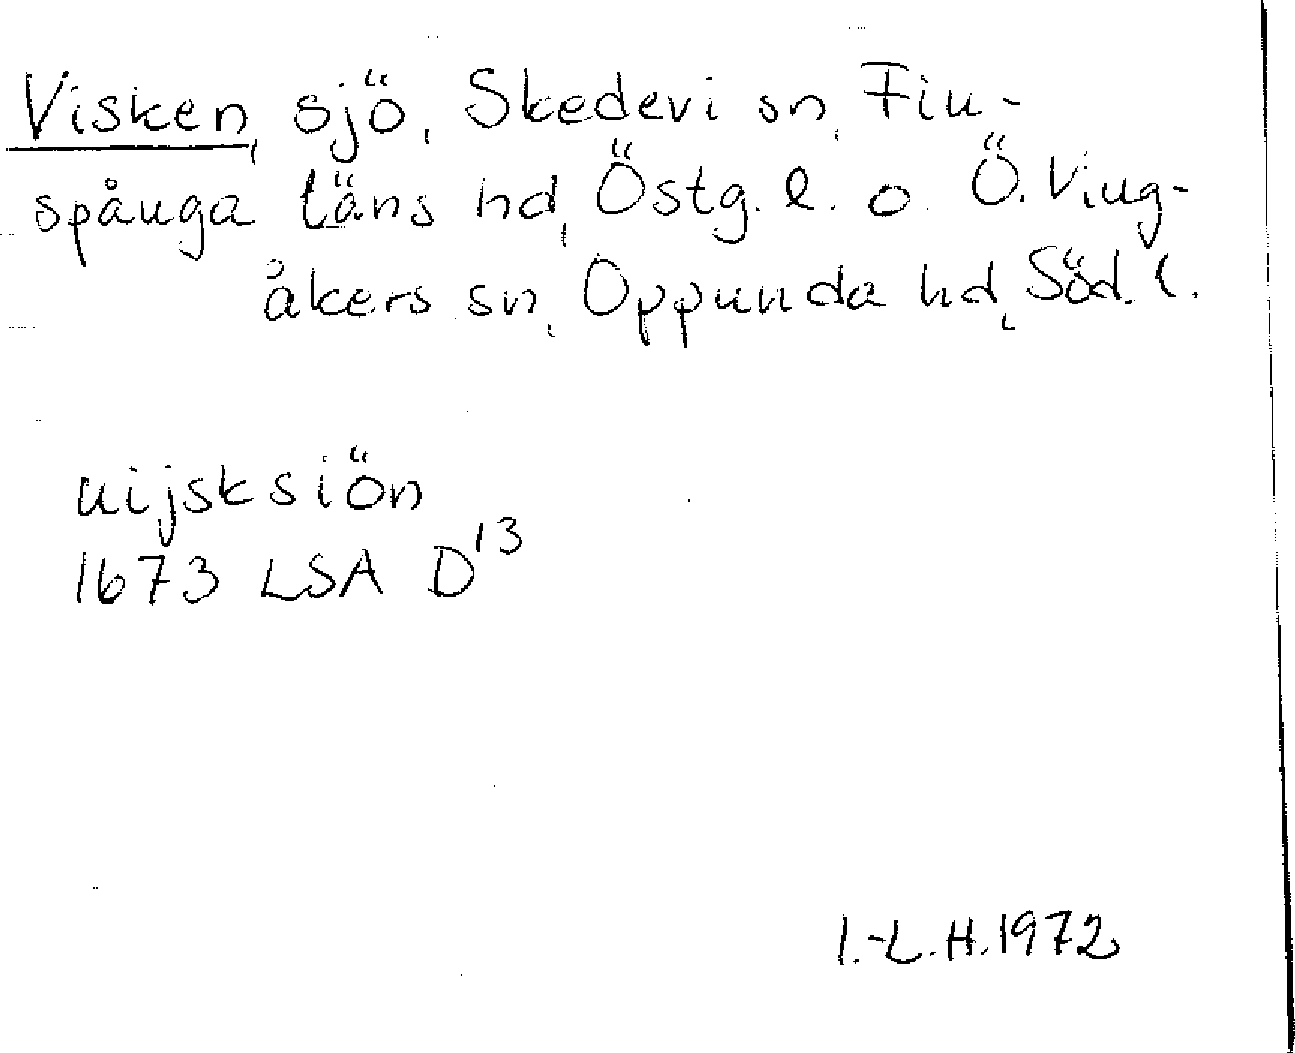 Visken, sjö, Skedevi sn, Fin-
spånga läns hd, Östg. l. o. Ö. Ving-
åkers sn, Oppunda hd, Söd. l.
uijsksiön
1673 LSA D13
I.-L.H.1972